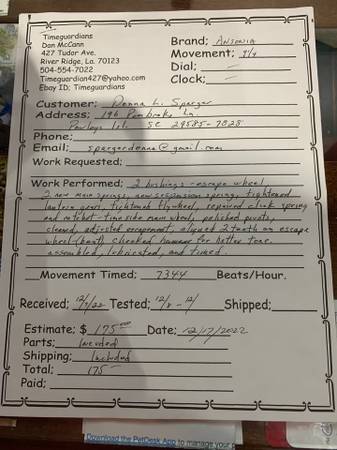 Timeguardians
Don McCann
427 Tudor Ave.
River Ridge, La. 70123
504-554-7022
Timeguardian427@yahoo.com
Ebay ID; Timeguardians
Brand; Ansonia
Movement;
Dial; —
Clock; —
Customer; Donna L. Sparger
Address; 196 Pembroke Ln.
Pawleys Isl. SC 29585-7028
Phone;
Email; spargerdonna@gmail.com
Work Requested;
Work Performed; 2 bushings - escape wheel
2 new main springs, new suspension spring, tightened
lantern gear, tightened flywheel, repaired click spring
and ratchet - time side main wheel, polished pivots,
cleaned, adjusted escapement, aligned 2 teeth on escape
wheel (bent), checked hammer for better tone,
assembled, lubricated, and timed.
Movement Timed; 7344 Beats/Hour.
Received; Tested; 12/8 - 12/ Shipped;
Estimate; $ 175 Date; 12/17/2022
Parts; Included
Shipping; Included
Total; 175
Paid;
Download the PetDesk App to manage your